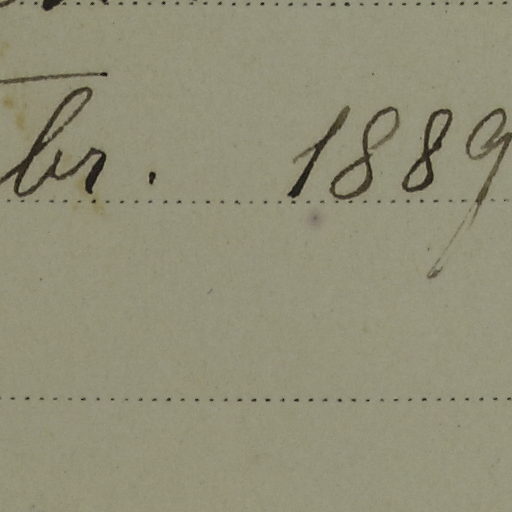 br. 1889